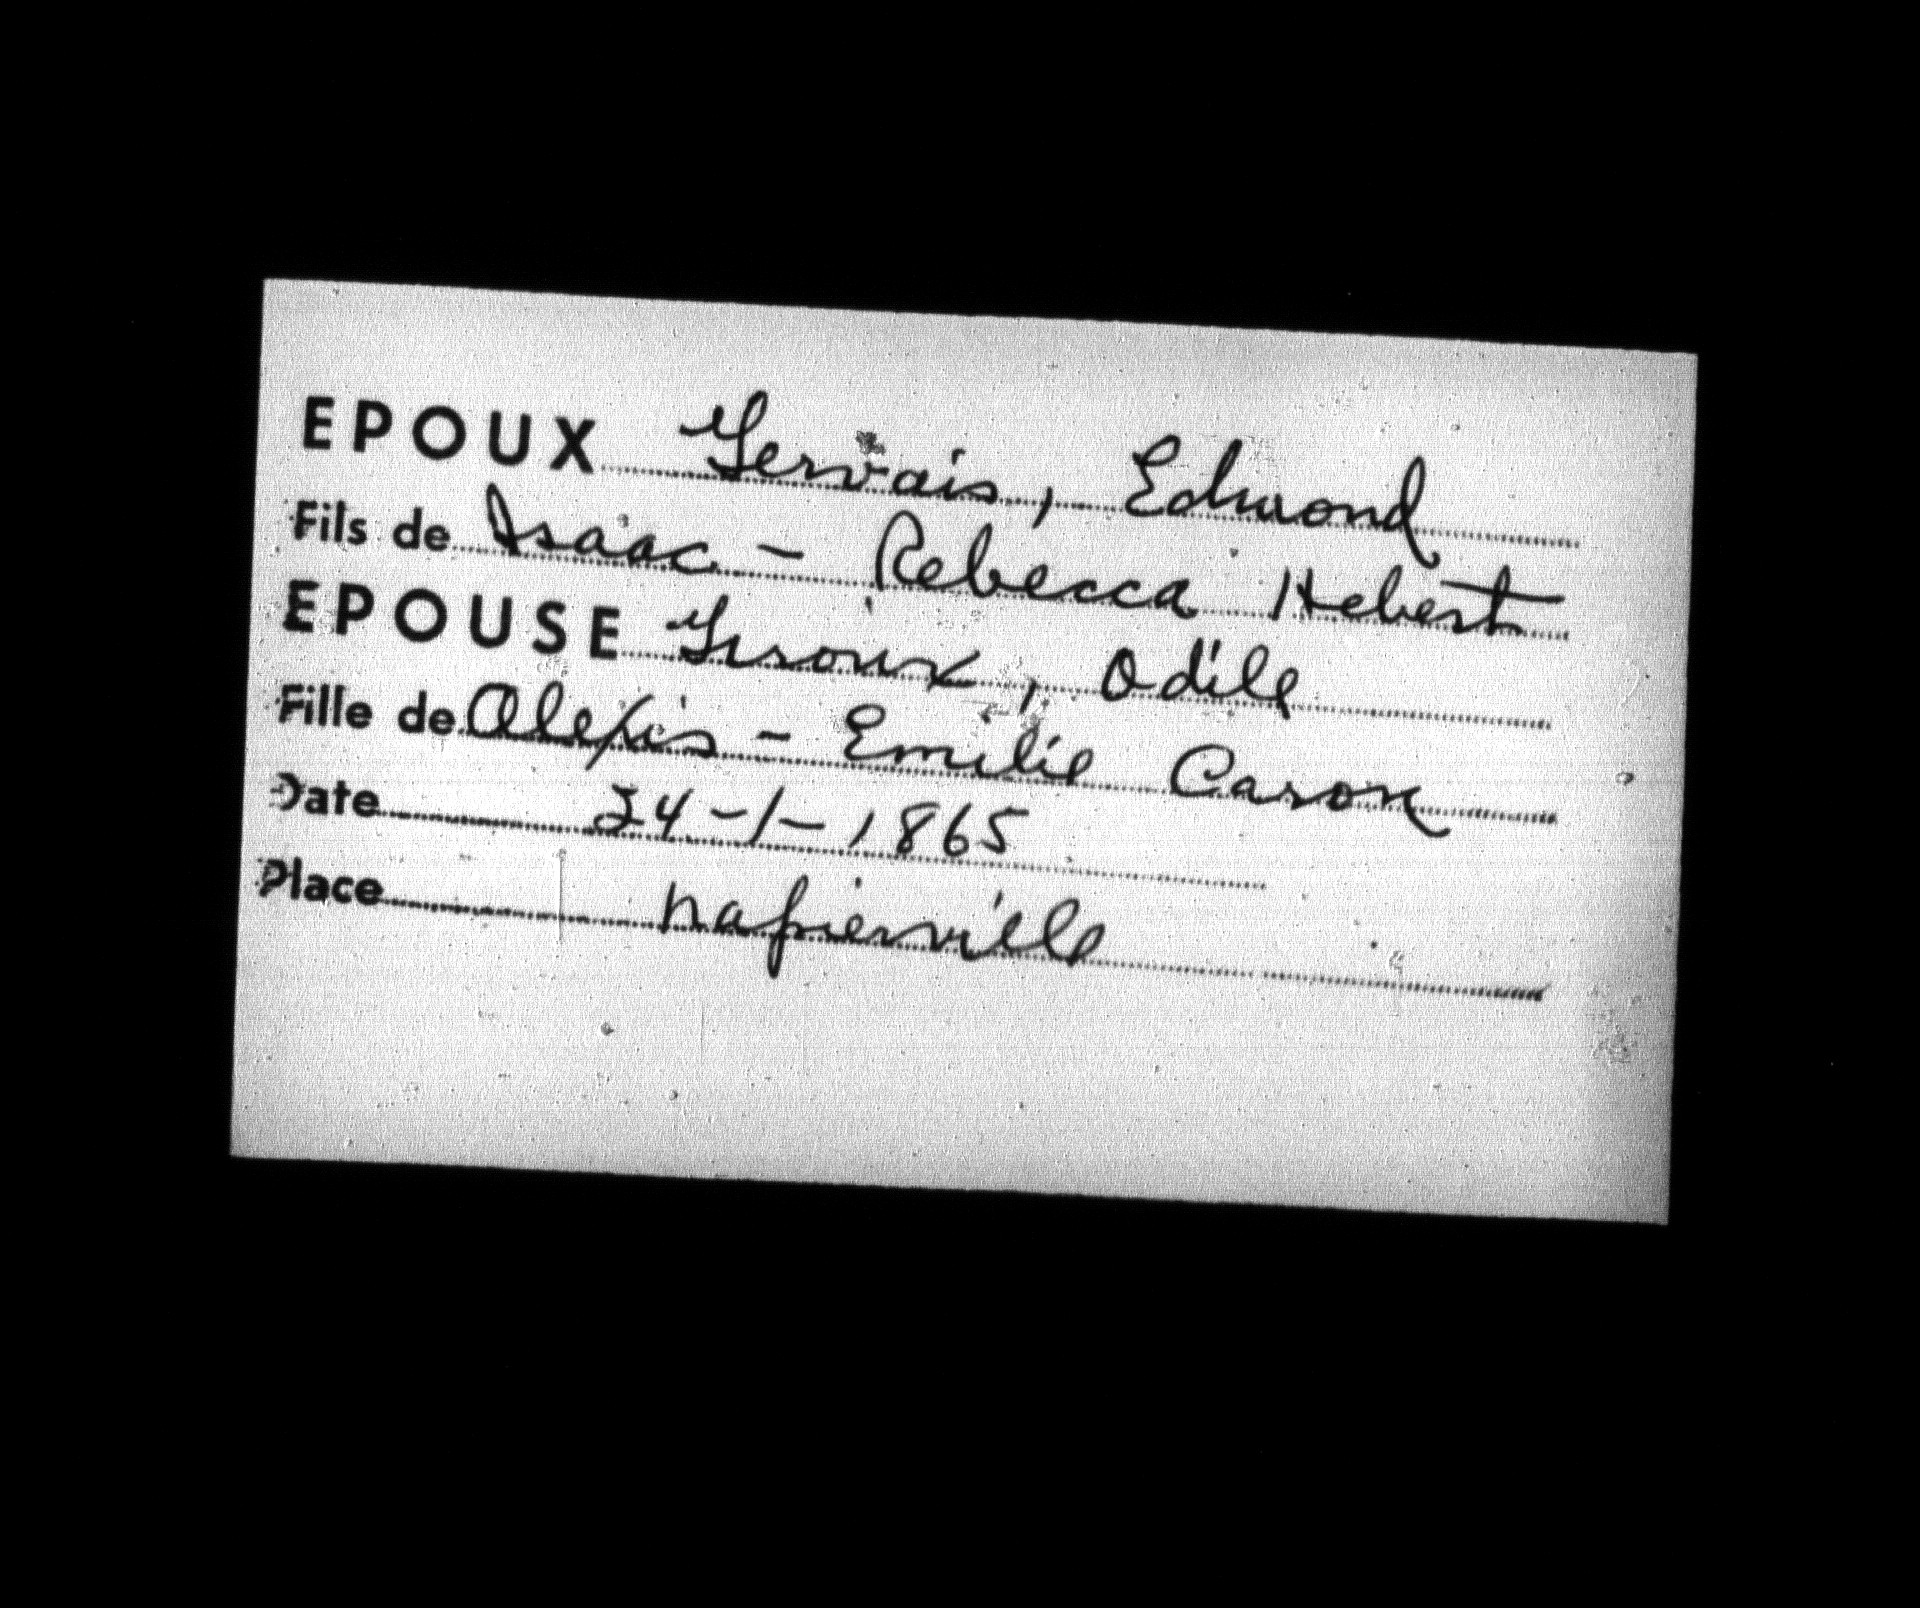 EPOUX Gervais, Edmond
Fils de Isaac - Rebecca Hebert
EPOUSE Giroux, Odile
Fille de Alexis - Emilie Caron
Date 24-1-1865
Place Napierville